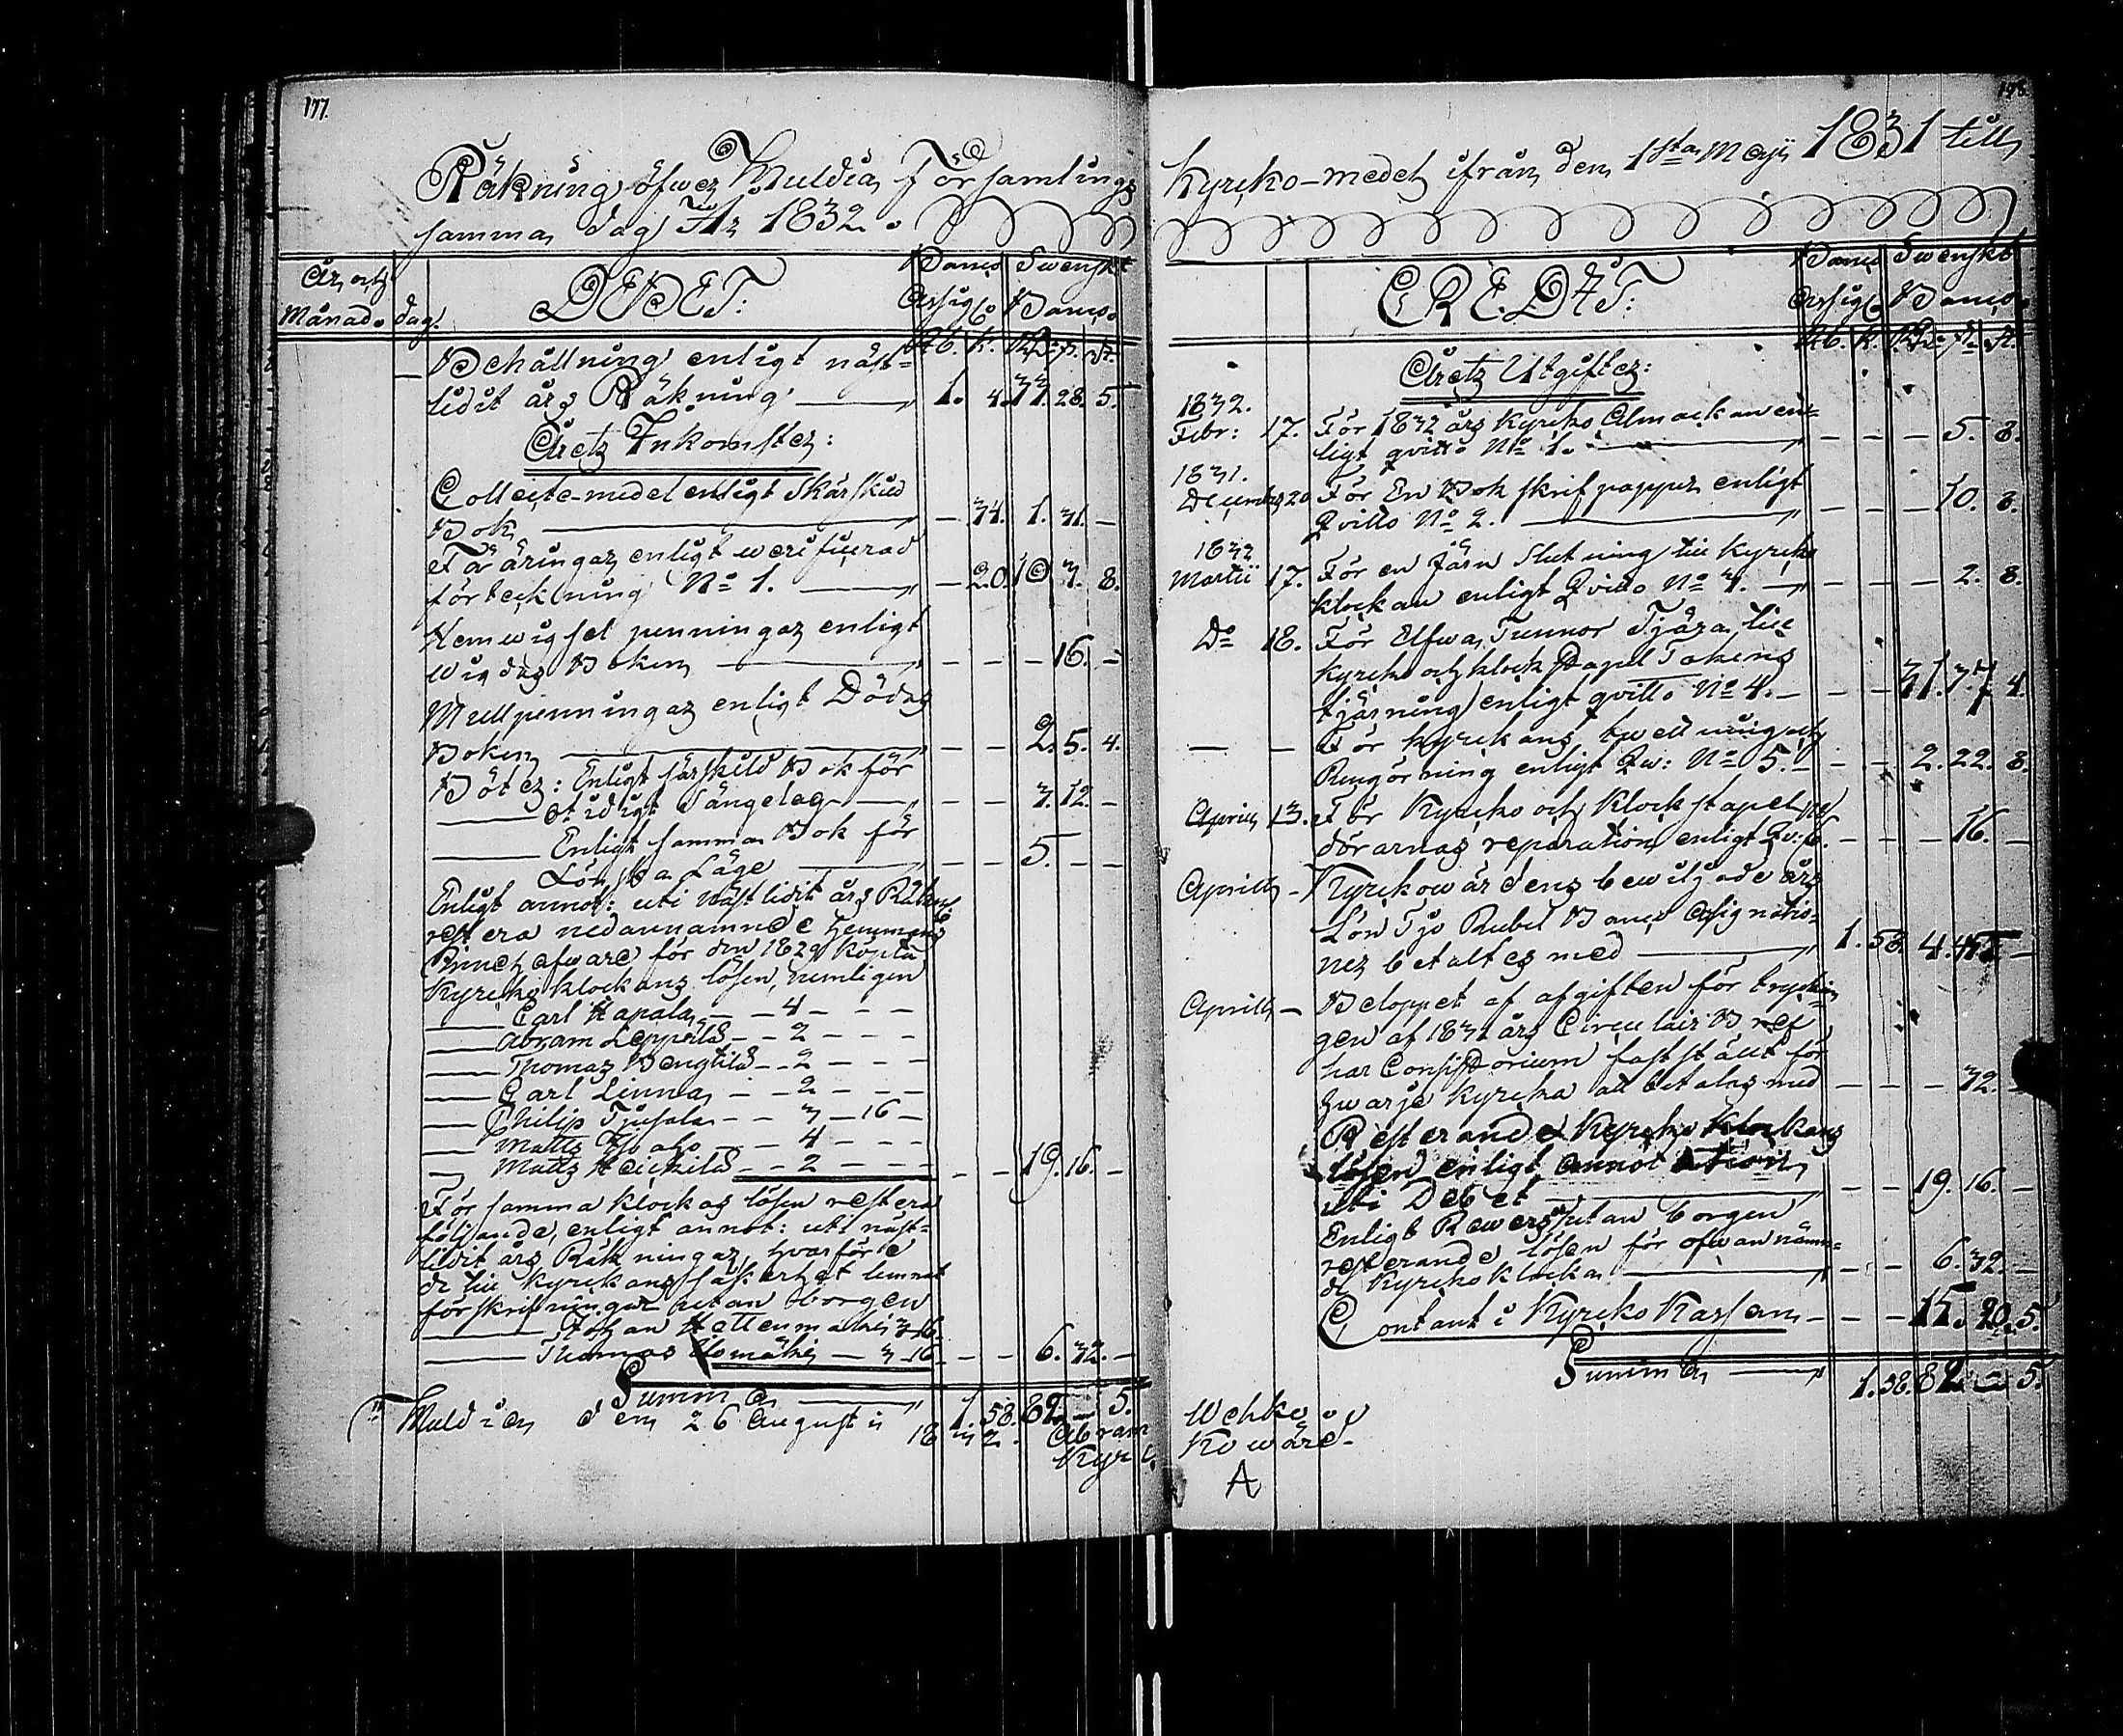 177.
Räkning öfwer Muldia Församlings
samma dag År 1832.
År och
Månad. dag.
DEBET:
Banco Swenskt
Assigb Banco.
Rb. k. Rd. s. r.
Behållning enligt näst=
lidit års Räkning — 1. 4. 33. 28. 5.
Årets Inkomster:
Collecte-medel enligt särskild
Bok — — 34. 1. 31. —
Fäåringar enligt werificerad
förteckning No 1. — — 20. 10 3. 8.
Hemwigsel penningar enligt
Wigdas Boken — — — — 16. —
Mullpenningar enligt Döds
Boken — — — 2. 5. 4.
Böter: Enligt särskild Bok för
— otidigt Sängelag — — — 3. 12. —
— Enligt samma Bok för
Lönska Läge — — 5. — —
Enligt annot: uti nästlidit års Räkn:
restera nedannämnde Hemmans
Innehafware för den 1829 köpta
Kyrcko klockans lösen, nemligen
— Carl Hapala — — 4 — — —
— Abram Leppälä — — 2 — — —
— Thomas Bengtilä — — 2 — — —
— Carl Linna — — 2 — — —
— Philip Tjusala — — 3 — 16 —
— Matts Isoaho — — 4 — — —
— Matts Heickilä — — 2 — — — — — 19. 16. —
För samma klockas lösen restera
följande, enligt annot: uti näst=
lidit års Räkningar, hvarföre
de till kyrckans säkerhet lemnat
förskrifningar utan borgen
— Johan Hettenmäki 3 16.
— Thomas Isomäki — 3 16 — — — 6. 32. —
Summa — 1. 58. 82. — 5.
Muldia den 26 Augusti 1832. Abram
Kyrc
178.
Kyrcko-medel ifrån den 1sta Maji 1831 till
CREDIT:
Banco Swenskt
Assigb Banco.
Rb. k. Rd. s. r.
Årets Utgifter:
1832.
Febr: 17. För 1832 års Kyrcko Almack en=
ligt qvitto No 1. — — — — 5. 8.
1831.
December 20 För En Bok skrif papper enligt
Qvitto No 2. — — — — 10. 8.
1832
Martii 17. För en järn slutning till Kyrcko
klockan enligt Qvitto No 3. — — — — 2. 8.
Do 18. För Elfwa Tunnor Tjära till
kyrcko och klockstapel Takens
tjärning enligt qvitto No 4. — — — 31. 37. 4.
— — För Kyrckans twättning och
Rengörning enligt Qw: No 5. — — — 2. 22. 8.
Aprill 13. För Kyrcko och Klockstapel
dörarnas reparation enligt Qw: 6. — — — 16. —
Aprill — Kyrckowärdens bewiljade års
Lön Tjo Rubel Banco Assignatio=
ner betaltes med — 1. 58. 4. 43. —
Aprill — Beloppet af afgiften för tryckni
gen af 1831 års Circulair Bref
har Consistorium fastställt för
hwarje kyrcka att betalas med — — — — 32. —
Resterande Kyrcko Klockans
lösen enligt annotation
uti Debet — — — 19. 16. —
Enligt Rewers utan borgen
resterande lösen för ofwannämn=
de Kyrcko Klocka — — — 6. 32. —
Contant i Kyrcko Kassan — — — 15. 20. 5.
Summa — 1. 58. 82. — 5.
Uchko
Kowärd.
A